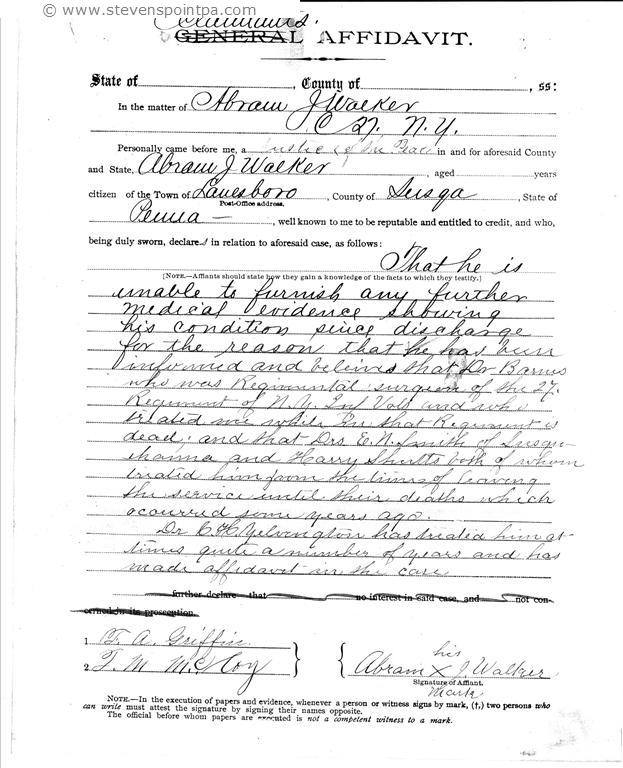 © www.stevenspointpa.com
Claimants'
GENERAL AFFIDAVIT.
State of , County of , ss:
In the matter of Abram J Walker
C 27. N.Y.
Personally came before me, a Justice of the Peace in and for aforesaid County
and State, Abram J Walker , aged years
citizen of the Town of Lanesboro , County of Susqa , State of
Post-Office address.
Penna — , well known to me to be reputable and entitled to credit, and who,
being duly sworn, declares in relation to aforesaid case, as follows:
That he is
[NOTE.—Affiants should state how they gain a knowledge of the facts to which they testify.]
unable to furnish any further
medical evidence showing
his condition since discharge
for the reason that he has been
informed and believes that Dr Barnes
who was Regimental surgeon of the 27.
Regiment of N.Y. Inf Vols and who
treated me while in that Regiment is
dead; and that Drs E. N. Smith of Susque
hanna and Harry Shutts both of whom
treated him from the time of leaving
the service until their deaths which
occurred some years ago.
Dr C H Yelvington has treated him at
times quite a number of years and has
made affidavit in the case
further declare that no interest in said case, and not con-
cerned in its prosecution.
1 F. A. Griffin
2 T. M McCoy
his
Abram X J. Walker
Signature of Affiant.
Mark
NOTE.—In the execution of papers and evidence, whenever a person or witness signs by mark, (†,) two persons who
can write must attest the signature by signing their names opposite.
The official before whom papers are executed is not a competent witness to a mark.